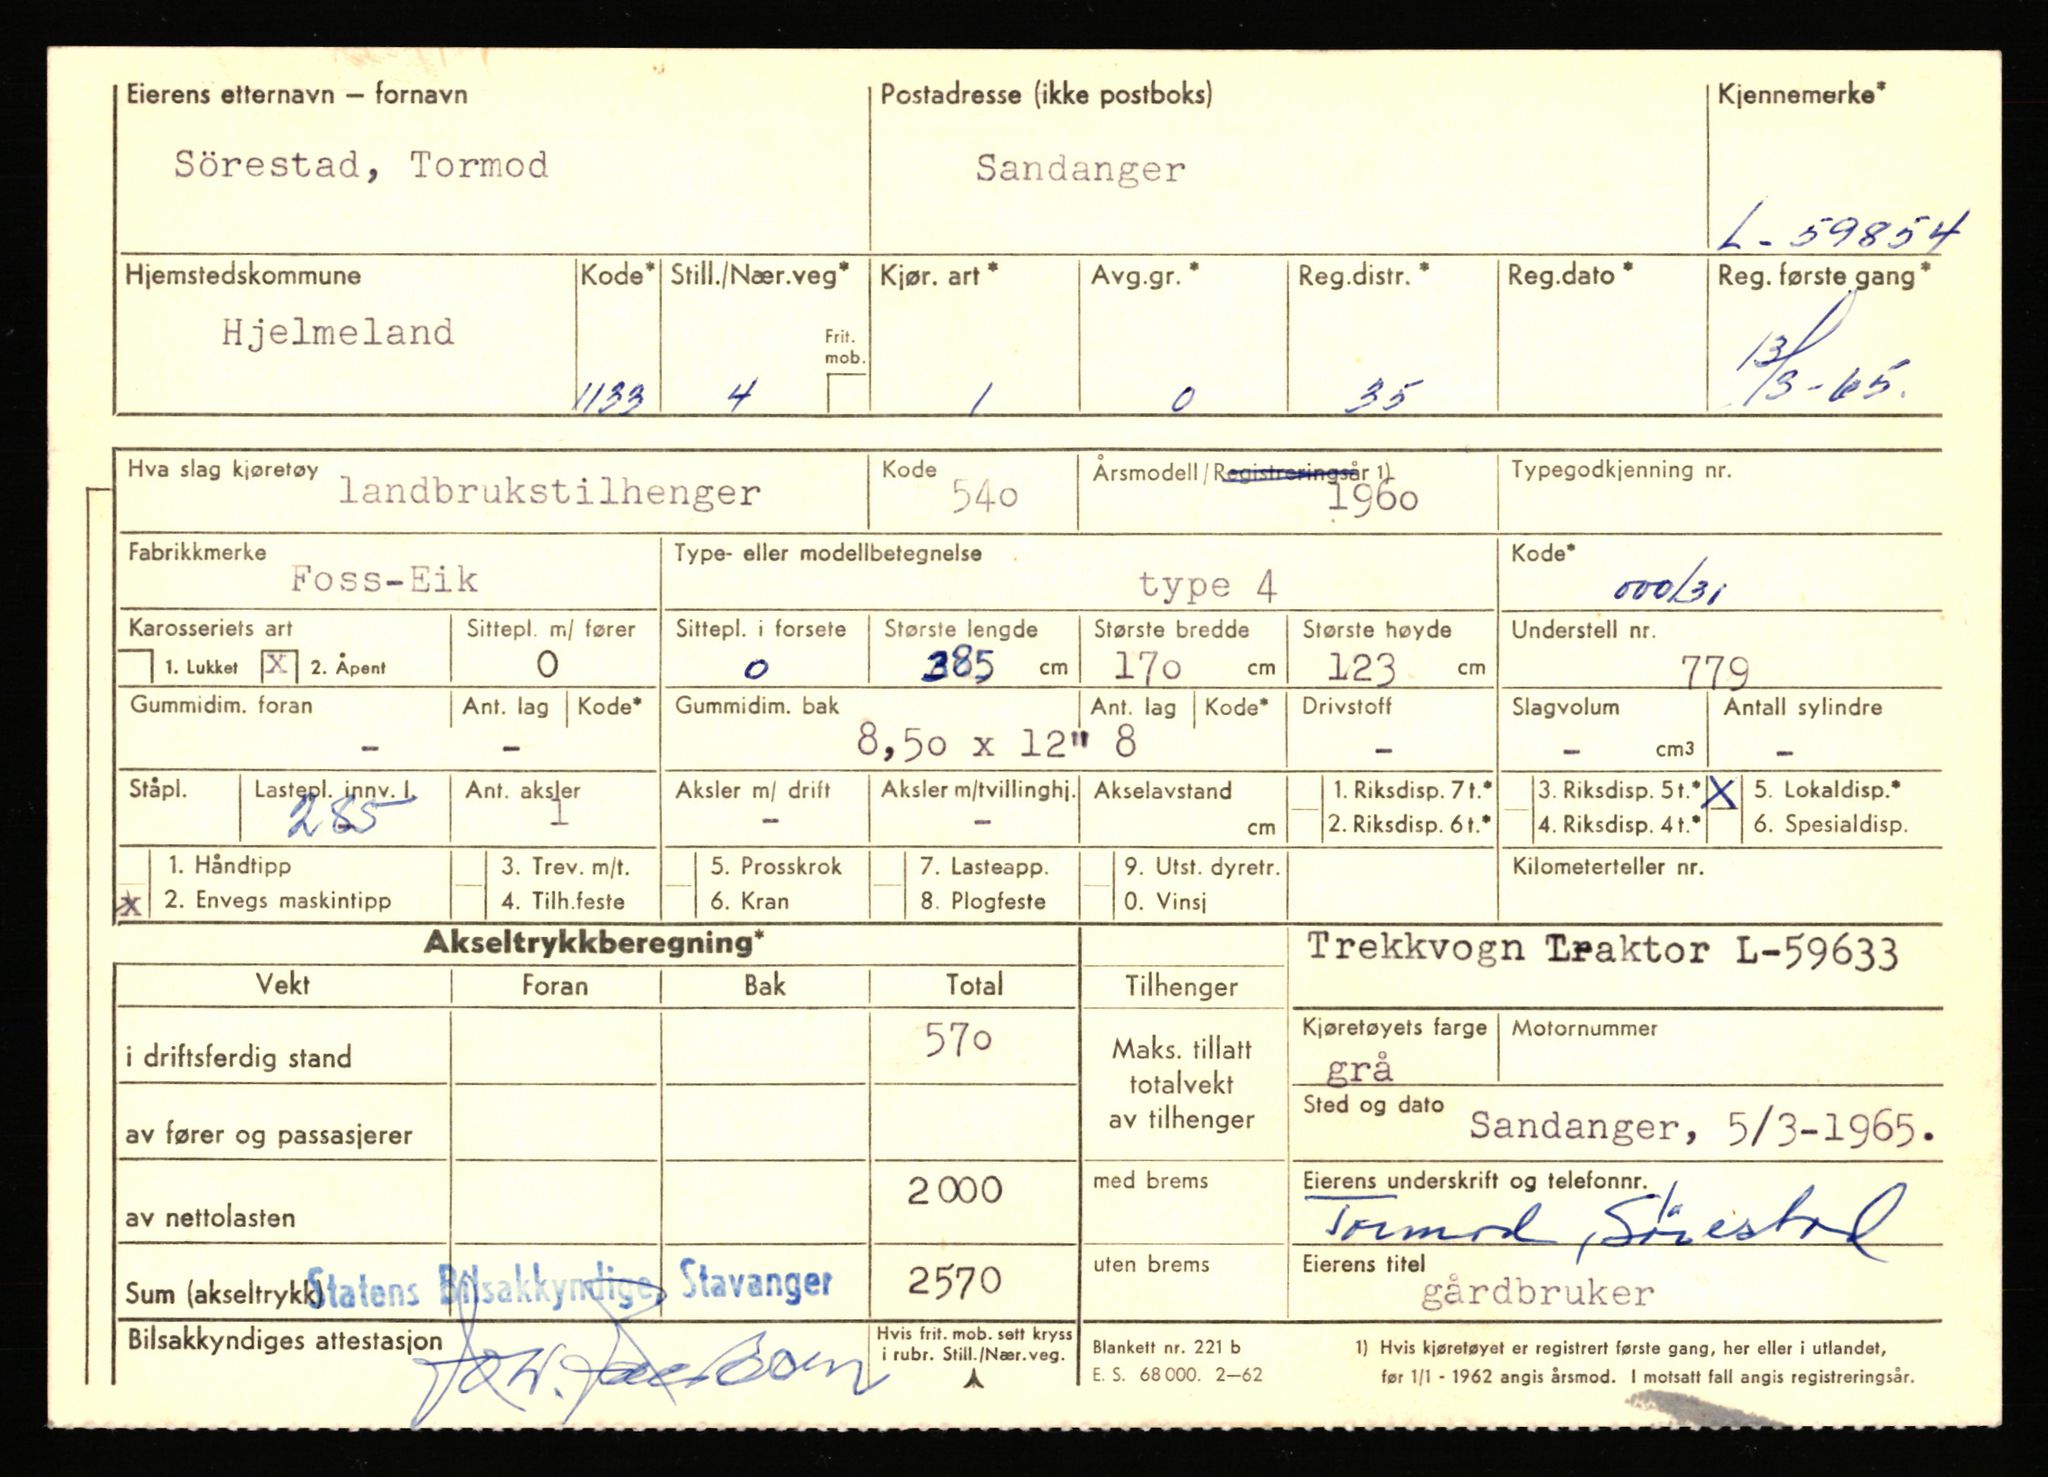 Eierens etternavn – fornavn Postadresse (ikke postboks) Kjennemerke*
Sörestad, Tormod Sandanger
L - 59854
Hjemstedskommune Kode* Still./Nær.veg* Kjør. art* Avg.gr.* Reg.distr.* Reg.dato* Reg. første gang*
Hjelmeland Frit. mob.
1133 4 1 0 35 13/3-65.
Hva slag kjøretøy landbrukstilhenger Kode 540 Årsmodell/Registreringsår 1) 1960 Typegodkjenning nr.
Fabrikkmerke Type- eller modellbetegnelse Kode*
Foss-Eik type 4 000/31
Karosseriets art Sittepl. m/ fører Sittepl. i forsete Største lengde Største bredde Største høyde Understell nr.
1. Lukket X 2. Åpent 0 0 385 cm 170 cm 123 cm 779
Gummidim. foran Ant. lag Kode* Gummidim. bak Ant. lag Kode* Drivstoff Slagvolum Antall sylindre
- - 8,50 x 12" 8 - - cm3 -
Ståpl. Lastepl. innv. l. Ant. aksler Aksler m/ drift Aksler m/tvillinghj. Akselavstand 1. Riksdisp. 7 t.* 3. Riksdisp. 5 t.* X 5. Lokaldisp.*
285 1 - - cm 2. Riksdisp. 6 t.* 4. Riksdisp. 4 t.* 6. Spesialdisp.
1. Håndtipp 3. Trev. m/t. 5. Prosskrok 7. Lasteapp. 9. Utst. dyretr. Kilometerteller nr.
x 2. Envegs maskintipp 4. Tilh.feste 6. Kran 8. Plogfeste 0. Vinsj
Akseltrykkberegning* Trekkvogn Traktor L-59633
Vekt Foran Bak Total Tilhenger
i driftsferdig stand 570 Maks. tillatt totalvekt av tilhenger Kjøretøyets farge Motornummer
grå
av fører og passasjerer Sted og dato Sandanger, 5/3-1965.
av nettolasten 2000 med brems Eierens underskrift og telefonnr.
Tormod Sörestad
Sum (akseltrykk) Statens Bilsakkyndige, Stavanger 2570 uten brems Eierens titel
gårdbruker
Bilsakkyndiges attestasjon Hvis frit. mob. sett kryss i rubr. Still./Nær.veg. Blankett nr. 221 b 1) Hvis kjøretøyet er registrert første gang, her eller i utlandet,
E. S. 68 000. 2–62 før 1/1 - 1962 angis årsmod. I motsatt fall angis registreringsår.